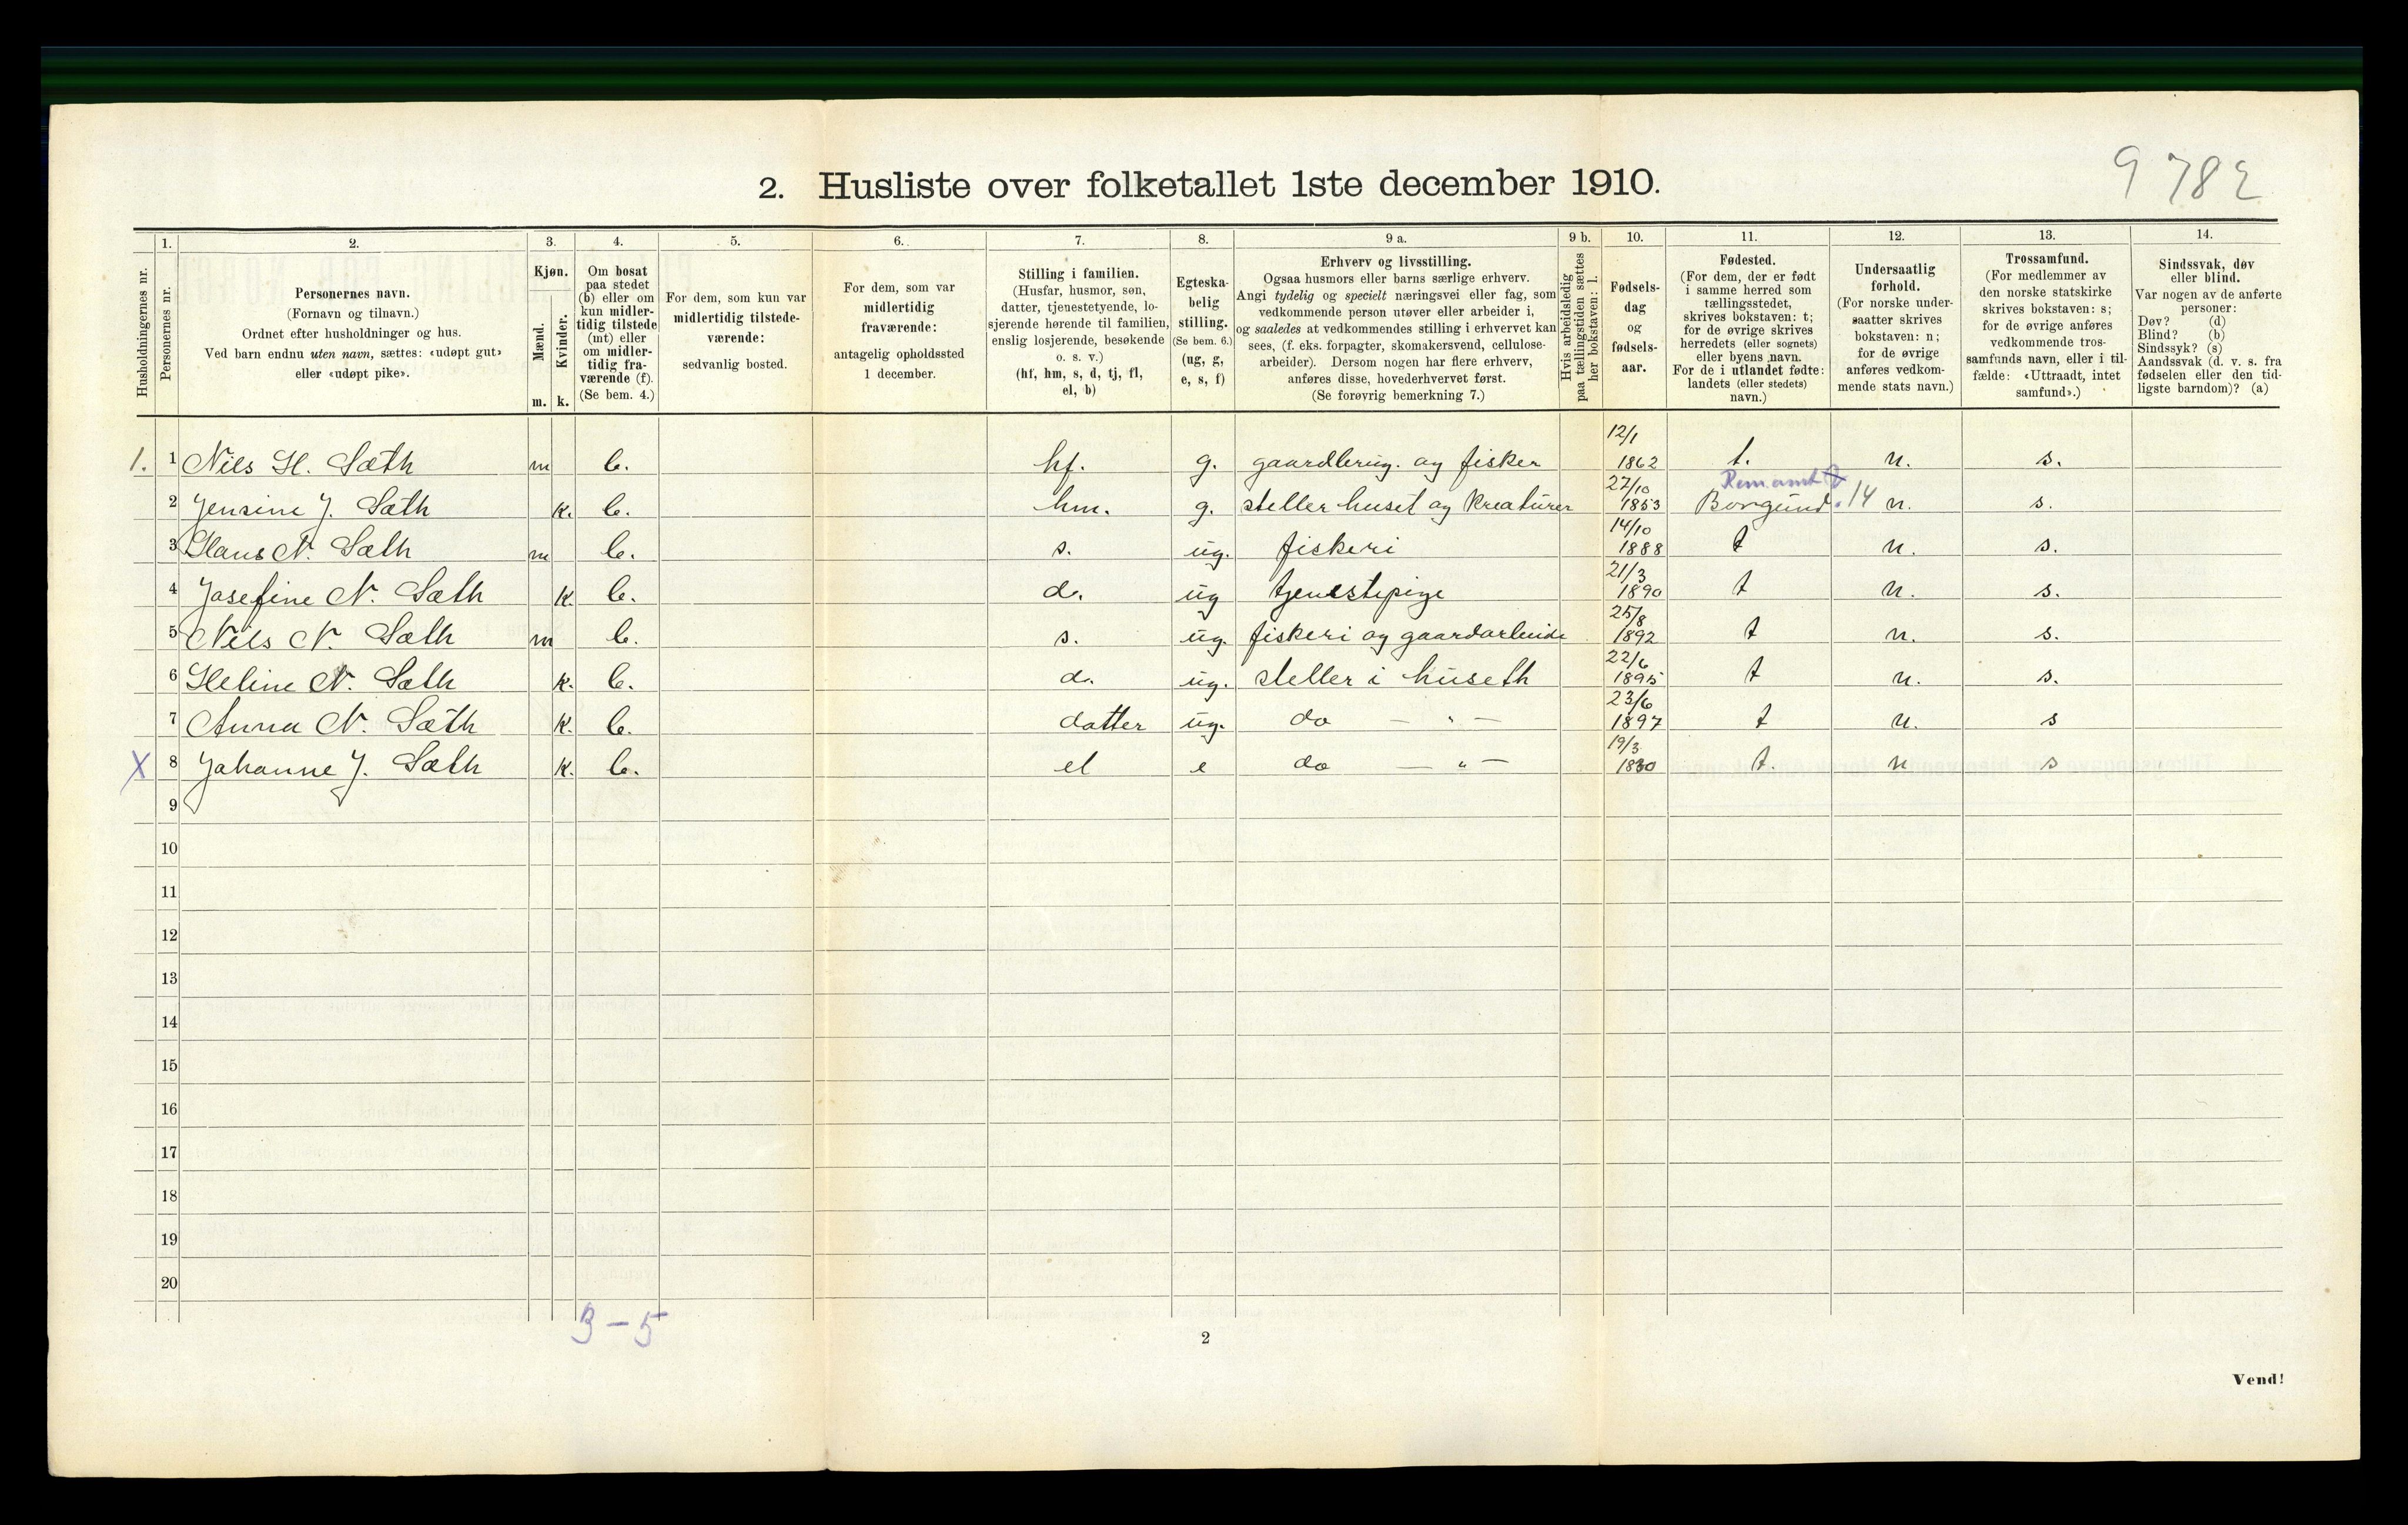 9 782
2. Husliste over folketallet 1ste december 1910.
Husholdningernes nr.
1.
Personernes nr.
2.
Personernes navn.
(Fornavn og tilnavn.)
Ordnet efter husholdninger og hus.
Ved barn endnu uten navn, sættes: «udøpt gut»
eller «udøpt pike».
3.
Kjøn.
Mænd.
Kvinder.
m. k.
4.
Om bosat
paa stedet
(b) eller om
kun midler-
tidig tilstede
(mt) eller
om midler-
tidig fra-
værende (f).
(Se bem. 4.)
5.
For dem, som kun var
midlertidig tilstede-
værende:
sedvanlig bosted.
6.
For dem, som var
midlertidig
fraværende:
antagelig opholdssted
1 december.
7.
Stilling i familien.
(Husfar, husmor, søn,
datter, tjenestetyende, lo-
sjerende hørende til familien,
enslig losjerende, besøkende
o. s. v.)
(hf, hm, s, d, tj, fl,
el, b)
8.
Egteska-
belig
stilling.
(Se bem. 6.)
(ug, g,
e, s, f)
9 a.
Erhverv og livsstilling.
Ogsaa husmors eller barns særlige erhverv.
Angi tydelig og specielt næringsvei eller fag, som
vedkommende person utøver eller arbeider i,
og saaledes at vedkommendes stilling i erhvervet kan
sees, (f. eks. forpagter, skomakersvend, cellulose-
arbeider). Dersom nogen har flere erhverv,
anføres disse, hovederhvervet først.
(Se forøvrig bemerkning 7.)
9 b.
Hvis arbeidsledig
paa tællingstiden sættes
her bokstaven: l.
10.
Fødsels-
dag
og
fødsels-
aar.
11.
Fødested.
(For dem, der er født
i samme herred som
tællingsstedet,
skrives bokstaven: t;
for de øvrige skrives
herredets (eller sognets)
eller byens navn.
For de i utlandet fødte:
landets (eller stedets)
navn.)
12.
Undersaatlig
forhold.
(For norske under-
saatter skrives
bokstaven: n;
for de øvrige
anføres vedkom-
mende stats navn.)
13.
Trossamfund.
(For medlemmer av
den norske statskirke
skrives bokstaven: s;
for de øvrige anføres
vedkommende tros-
samfunds navn, eller i til-
fælde: «Uttraadt, intet
samfund».)
14.
Sindssvak, døv
eller blind.
Var nogen av de anførte
personer:
Døv? (d)
Blind? (b)
Sindssyk? (s)
Aandssvak (d. v. s. fra
fødselen eller den tid-
ligste barndom)? (a)
1. 1 Nils H. Sæth m b. hf. g. gaardbrug. og fisker 12/1 1862 t. n. s.
Rom.amt
2 Jensine J. Sæth k. b. hm. g. steller huset og Kreaturer 27/10 1853 Borgund. 14 n. s.
3 Hans N. Sæth m b. s. ug. fiskeri 14/10 1888 t n. s.
4 Josefine N. Sæth k. b. d. ug tjenestepige 21/3 1890 t n. s.
5 Nils N. Sæth m b. s. ug. fiskeri og gaardarbeide 25/8 1892 t n. s.
6 Heline N. Sæth k. b. d. ug. steller i huseth 22/6 1895 t n. s.
7 Anna N. Sæth k. b. datter ug. do — " — 23/6 1897 t n. s
X 8 Johanne J. Sæth k. b. el e do — " — 19/3 1830 t. n s
9
10
11
12
13
14
15
16
17
18
19
20
3 – 5
2
Vend!